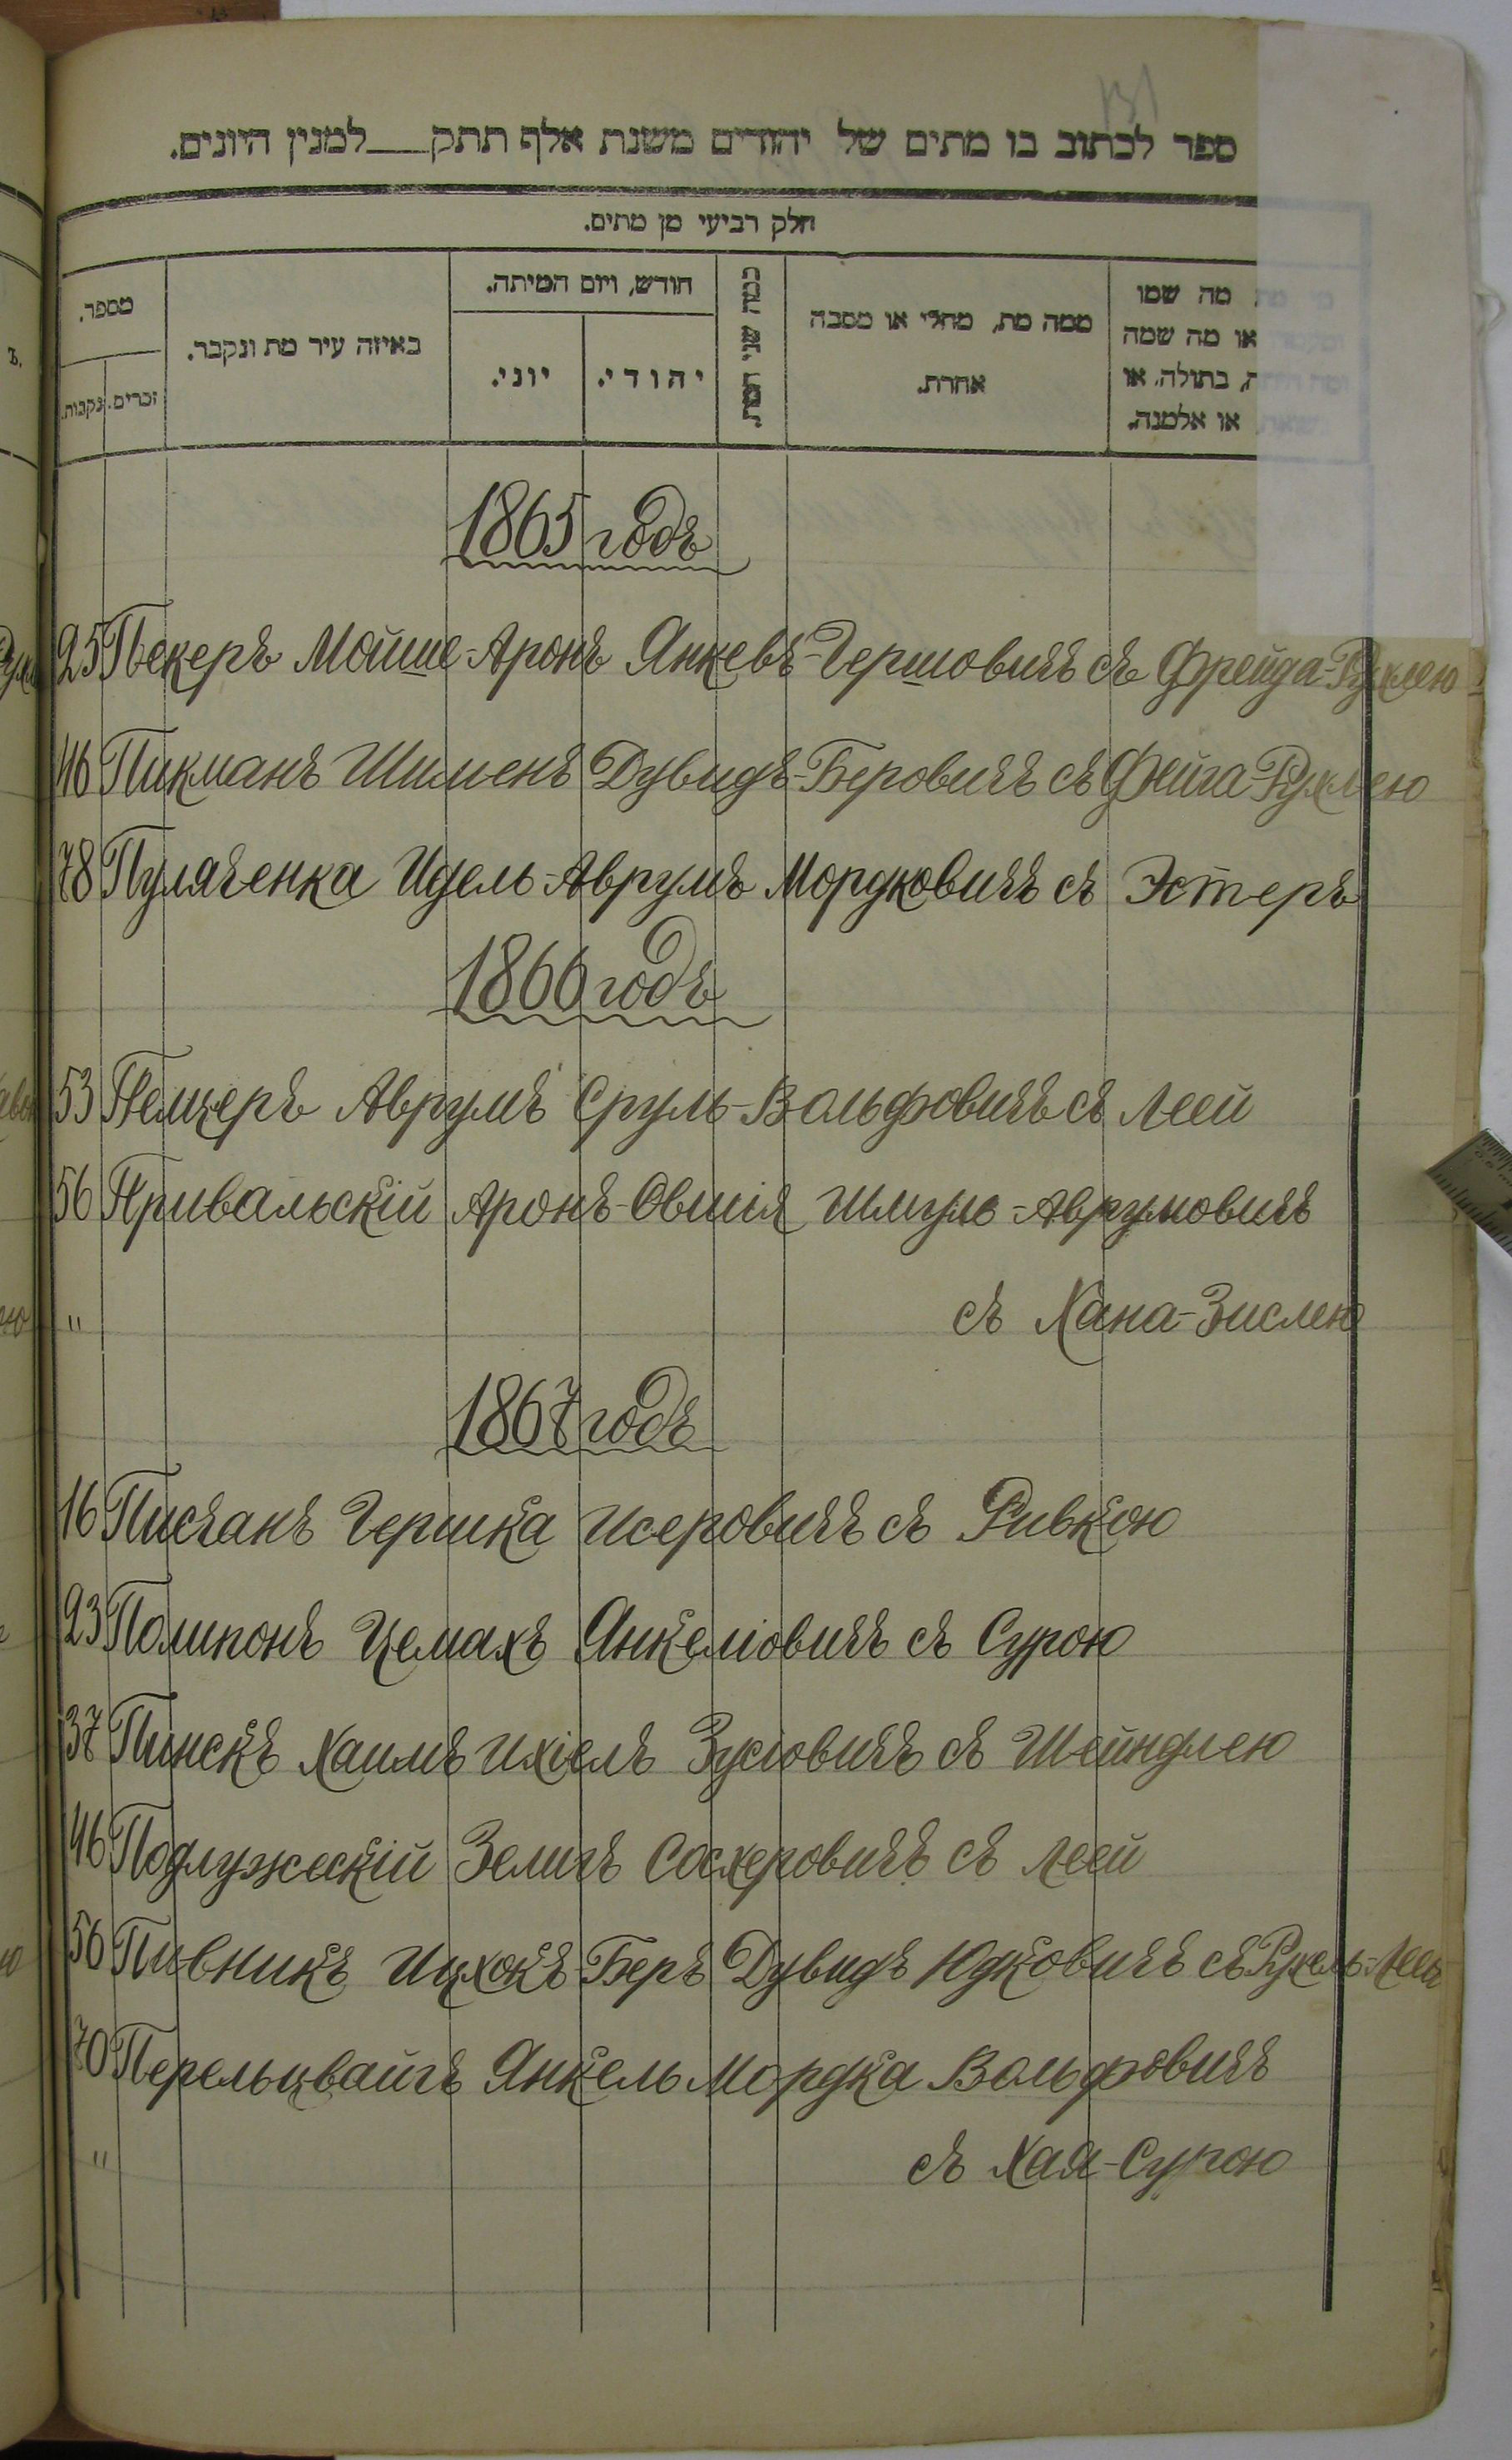 ספר לכתוב בו מתים של יהודים משנת אלף תתק ___ למנין היונים.
חלק רביעי מן מתים.
מספר.
זכרים.
נקבות.
באיזה עיר מת ונקבר.
חודש, ויום המיתה.
יהודי.
יוני.
ממה מת, מחלי או מסבה
אחרת.
מה שמו
או מה שמה
בתולה, או
או אלמנה.
1865 годъ
25 Пекеръ Мойше-Аронъ Янкевъ-Гершовичъ съ Фрейда-Рухлею
46 Пикманъ Шименъ Дувидъ-Беровичъ съ Фейга-Рухлею
78 Пуляченка Идель-Аврумъ Мордковичъ съ Эстеръ
1866 годъ
53 Пельцеръ Аврумъ Сруль-Вольфовичъ съ Леей
56 Привальскій Аронъ-Овшія Шмуль-Аврумовичъ
" съ Хана-Зислею
1867 годъ
16 Писчанъ Гершка Исеровичъ съ Ривкою
23 Полипонъ Цемахъ Янкеліовичъ съ Сурою
37 Пинскъ Хаимъ Ихіелъ Зусіовичъ съ Шейндлею
46 Подлужескій Зелигъ Сосхеровичъ съ Леей
56 Пивникъ Ицхокъ-Беръ Дувидъ Юдковичъ съ Рухель-Леей
70 Перельцвайгъ Янкель Мордка Вольфовичъ
" съ Хая-Сурою